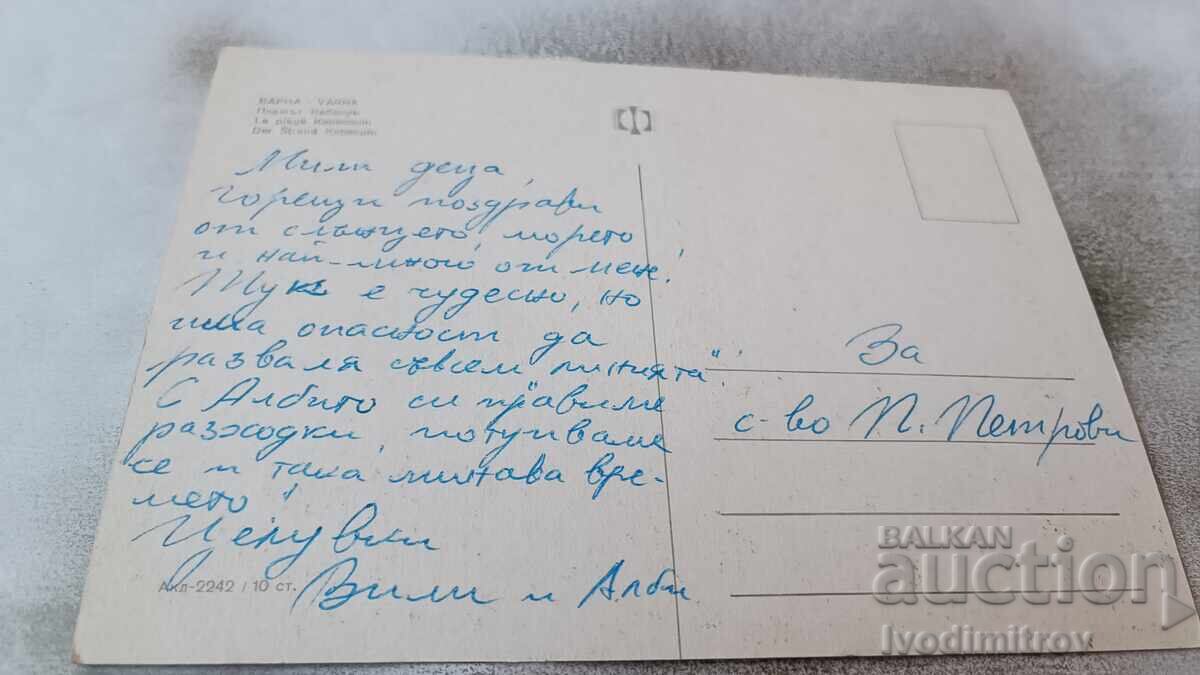 ВАРНА - VARNA
Плажът Кабакум
La plage Kabakoum
Der Strand Kabakum
Мили деца,
горещи поздрави
от слънцето, морето
и най-много от мен!
Тук е чудесно, но
има опасност да
разваля съвсем линията".
С Албито си правиме
разходки, потупваме
се и така минава вре-
мето!
Целувки
Вили и Алби
АКЛ-2242 / 10 ст.
За
с-во П. Петрови
BALKAN
auction
Ivodimitrov